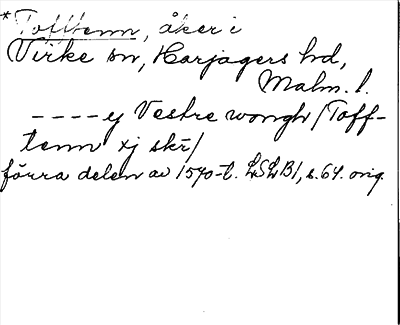 * Tofftenn, åker i
Virke sn, Harjagers hd,
Malm. l.
---- ej Vestre wongh /Toff-
tenn xj skr/
förra delen av 1570-t. LSLB1, s. 64. orig.